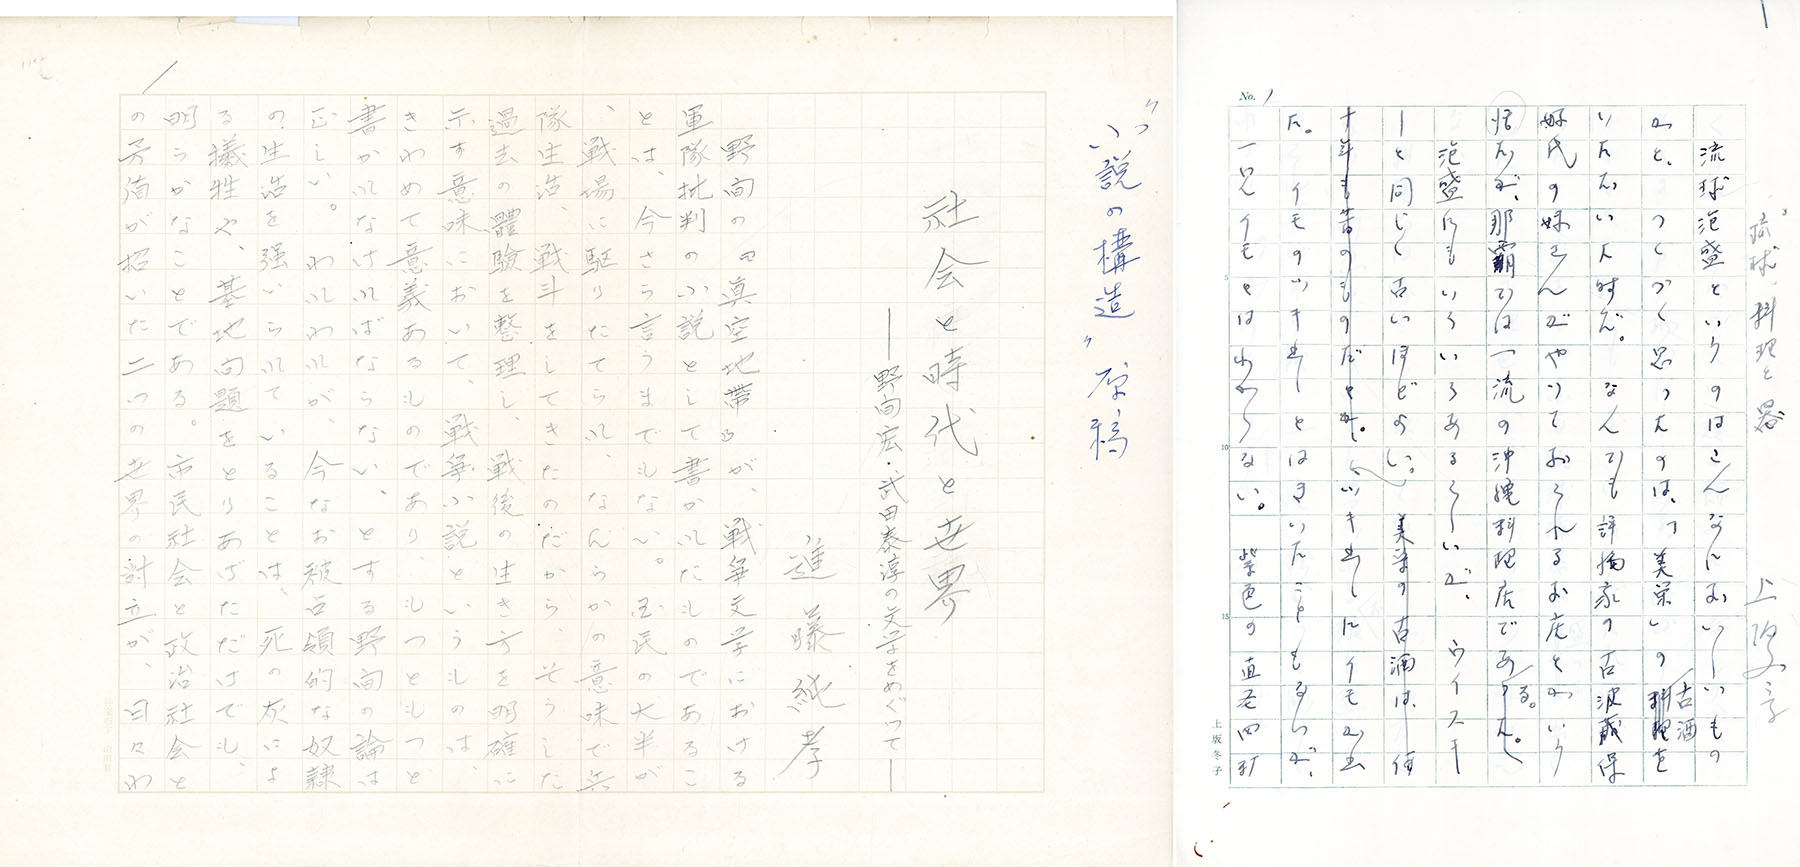 "小説の構造" 原稿
社会と時代と世界
――野間宏・武田泰淳の文学をめぐって――
進藤純孝
野間の『真空地帯』が、戦争文学における
軍隊批判の小説として書かれたものであるこ
とは、今さら言うまでもない。国民の大半が
、戦場に駆りたてられ、なんらかの意味で兵
隊生活、戦斗をしてきたのだから、そうした
過去の體驗を整理し、戦後の生き方を明確に
示す意味において、戦争小説というものは、
きわめて意義あるものであり、もっともっと
書かれなければならない、とする野間の論は
正しい。われわれが、今なお被占領的な奴隷
の生活を强いられていることは、死の灰によ
る犠牲や、基地问題をとりあげただけでも、
明らかなことである。市民社会と政治社会と
の分値が招いた二つの世界の討立が、日々わ
"琉球"料理と器
上坂冬子
No. 1
流球泡盛というのはこんなにおいしいもの
かと、つくづく思ったのは、"美栄"の古酒を
いただいた時だ。なんでも評論家の古波蔵保
好氏の妹さんがやっておられるお店とかいう
話だが、那覇では一流の沖縄料理店である。
泡盛にもいろいろあるらしいが、ウイスキ
ーと同じく古いほどよい。美栄の古酒は、何
十年も昔のものだとか。
た。イモのウイキョーとはきいたこともないが、
一見イモとはわからない。紫色の直径四訂
5
10
15
上坂冬子